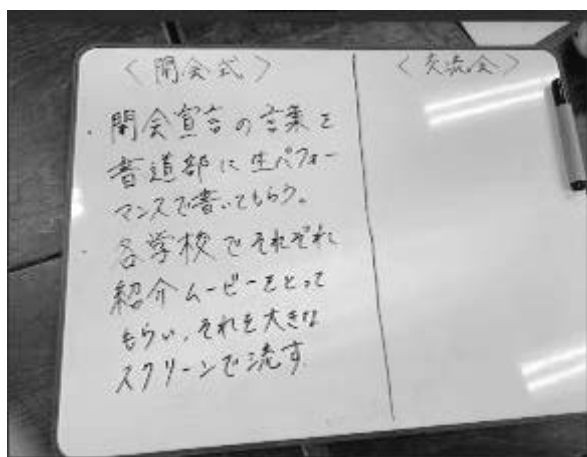 〈開会式〉
・開会宣言の言葉を
書道部に生パフォー
マンスで書いてもらう。
・各学校でそれぞれ
紹介ムービーをとって
もらい、それを大きな
スクリーンで流す
〈交流会〉